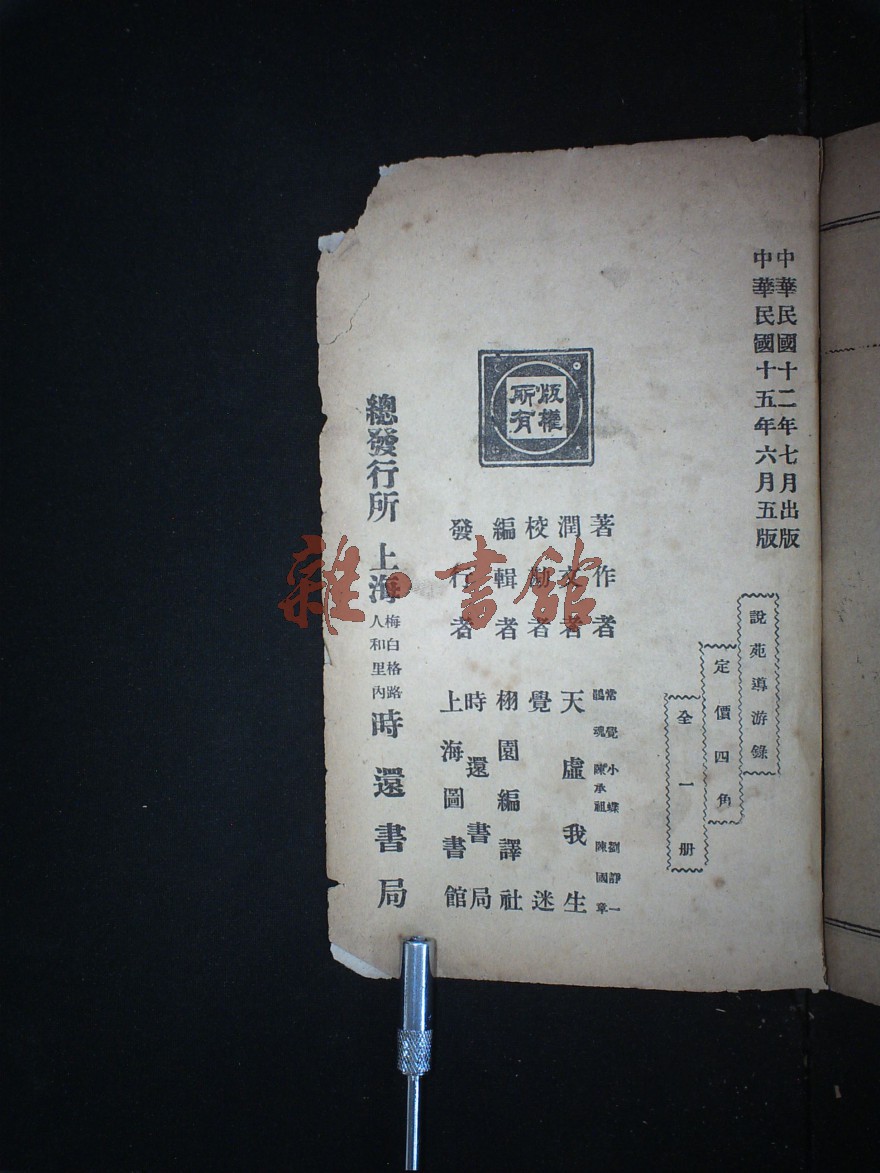 中華民國十二年七月出版
中華民國十五年六月五版
說苑導游錄
定價四角
全一册
版權所有
著作者 常覺 小蝶 劉靜一
鵑魂 陳承祖 陳國章
潤文者 天虛我生
校勘者 覺迷
編輯者 栩園編譯社
發行者 時還書局
上海圖書館
總發行所 上海 梅白格路人和里內 時還書局
雜·書館